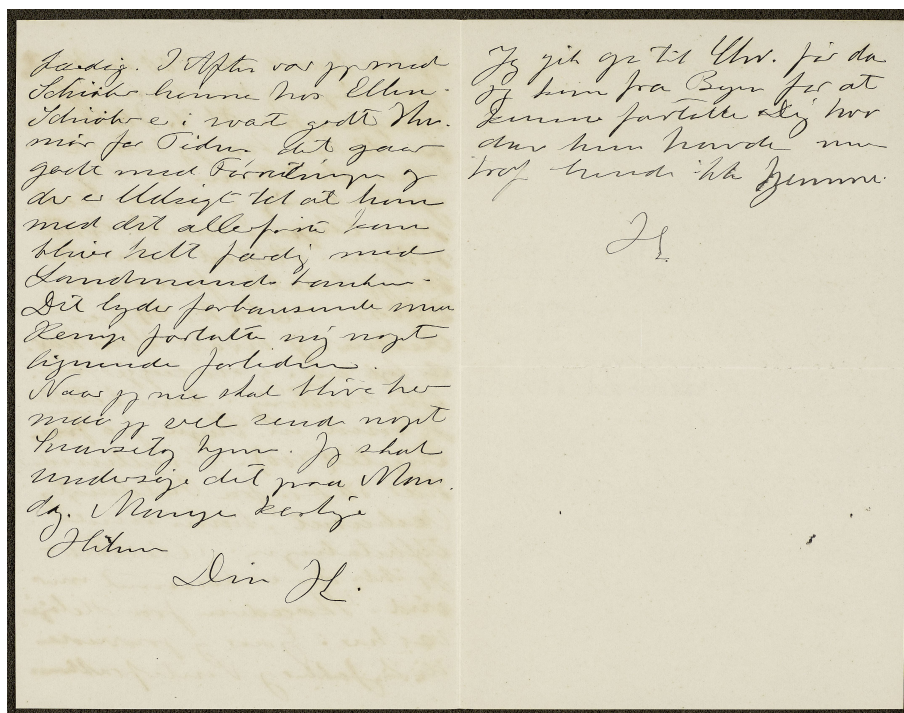 færdig. I Aften var jeg med
Schiøler henne hos Ellen -
Schiøler er i svært godt Hu-
mør for Tiden. Det gaar
godt med Forretningen og
der er Udsigt til at han
med det allerførste kan
blive helt færdig med
Landmandsbanken.
Det lyder forbausende men
fortalte mig noget
lignende forleden.
Naar jeg nu skal blive her
maa jeg vel sende noget
hjem. Jeg skal
undersøge det paa Man-
dag. Mange kærlige
Hilsner
Din H.
Jeg gik op til Chr. før da
jeg kom fra Byen for at
kunne fortælle Dig hvor-
dan hun havde men
traf hende ikke hjemme.
H.